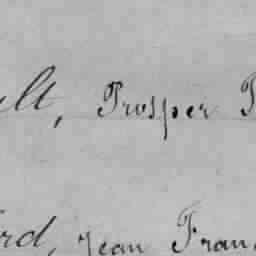 lt, Prosper
rd, Jean Fran